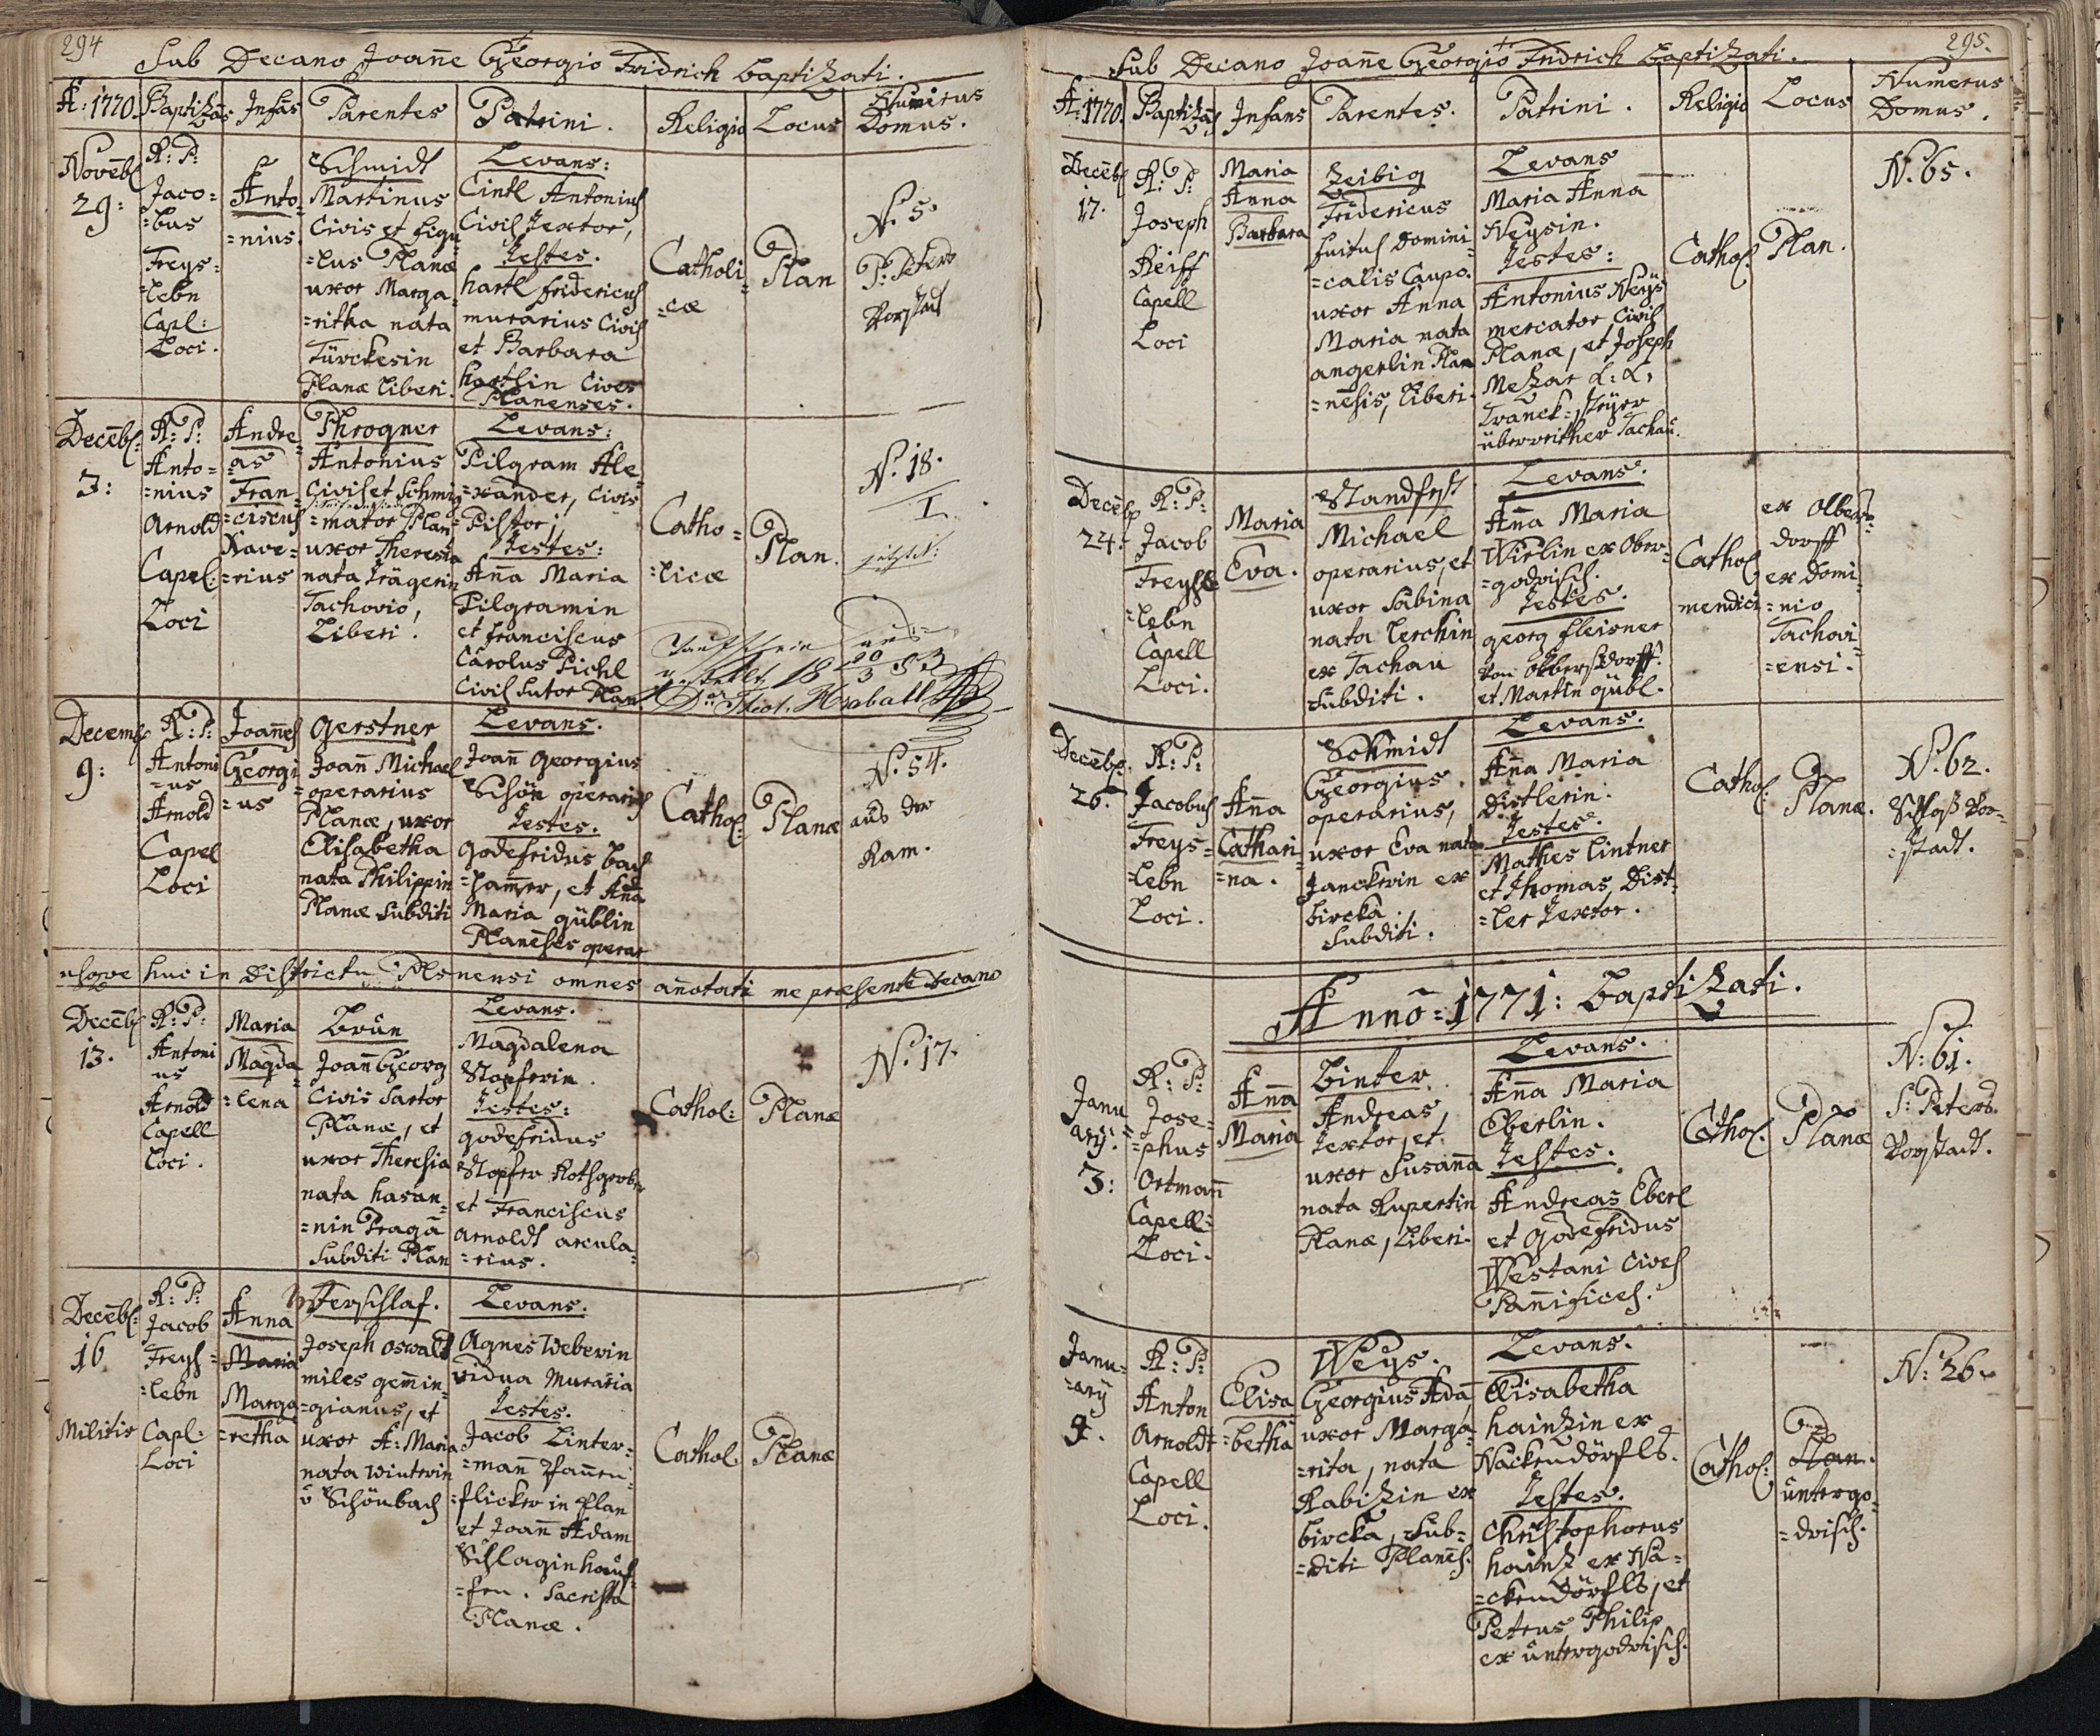 294
Sub Decano Joañe Georgio Fridrich baptizati.
A: 1770. Baptizãs Infãs Parentes Patrini. Religio Locus Numerus Domus.
Novẽb
29:
R: P:
Jaco=
=bus
Freys=
=lebn
Capl:
Loci.
Anto=
=nius.
Schmidt
Martinus
Civis et figu
=lus Planæ
uxor Marga=
=ritha nata
Türckesin
Planæ liberi.
Levans:
Cintl Antonius
Civis Textor,
Testes.
hartl fridericus
murarius Civis
et Barbara
hartlin Cives
Planenses.
Catholi=
=cæ
Plan
N. 5.
P: Peters
Vorstadt
Decẽb:
3:
R: P:
Anto=
=nius
Arnold
Capel:
Loci
Andre
=as
Fran=
=ciscus
Xave=
=rius
Phrogner
Antonius
Civis et Schmig
=mator Plan=
uxor Theresia
nata Trägerin
Tachovio,
Liberi.
Levans:
Pilgram Ale=
=xander, Civis
Pistor;
Testes:
Aña Maria
Pilgramin
et franciscus
Carolus Pichl
Civis Sutor Plan
Catho=
=licæ
Plan.
N. 18.
I.
Taufschein aus=
gestellt 18 20/3 83
Decemb
9:
R: P:
Antoni
=us
Arnold
Capel
Loci
Joañes
Georgi
=us
Gerstner
Joañ Michael
operarius
Planæ, uxor
Elisabetha
nata Philippin
Planæ Subditi
Levans.
Joañ Georgius
Schön operarius
Testes.
Godefridus bach
=hamer, et Aña
Maria güblin
Planẽses operar
Cathol:
Planæ
N. 54.
aus der
Ram.
usque huc in Districtu Plsnensi omnes añotati me præsente Decano
Decẽb
13.
R: P:
Antoni
us
Arnold
Capell
Loci.
Maria
Magda
=lena
Brun
Joañ Georg
Civis Sartor
Planæ, et
uxor Theresia
nata hasan=
=nin Praga
Subditi Plan
Levans.
Magdalena
Stopferin.
Testes:
godefridus
Stopfer Rothgerber
et Franciscus
Arnoldt arcula=
=rius.
Cathol:
Planæ
N. 17.
Decẽb:
16
Militis
R: P:
Jacob
Freys=
=lebn
Capl:
Loci
Anna
Maria
Marga=
=retha
Verschlaf.
Joseph Oswald
miles gemin=
=gianus, et
uxor A: Maria
nata Winterin
v Schönbach
Levans.
Agnes Weberin
vidua Muraria
Testes.
Jacob Linter=
=mañ Pfañen=
=flicker in Plan
et Joañ Adam
Schlaginhauf=
=fen. Sacrista
Planæ.
Cathol.
Planæ
295.
Sub Decano Joañe Georgio Fridrich baptizati.
A: 1770. Baptizãs Infans Parentes. Patrini. Religio Locus Numerus Domus.
Decẽb
17.
R: P:
Joseph
Reiff
Capell
Loci
Maria
Anna
Barbara
Zeibig
Fridericus
huius Domini
=calis Caupo.
uxor Anna
Maria nata
angerlin Plan
=nẽsis, Liberi.
Levans
Maria Anna
Weysin.
Testes:
Antonius Weys
mercator Civis
Planæ, et Joseph
Mezar K: K:
Tranck=steyer
überreither Tachau.
Cathol:
Plan.
N. 65.
Decẽb
24.
R: P:
Jacob
Freyss
=lebn
Capell
Loci.
Maria
Eva.
Standfest
Michael
operarius, et
uxor Sabina
nata Lerchin
ex Tachau
Subditi.
Levans.
Aña Maria
Wirlin ex Ober=
=godrisch.
Testes.
georg fleisner
von Olbersdorff.
et Martin gübl.
Cathol
mendici
ex Olbers=
dorff
ex Domi
=nio
Tachovi
=ensi.
Decẽb.
26.
R: P:
Jacobus
Freys=
=lebn
Loci.
Aña
Cathari=
=na.
Schmidt
Georgius.
operarius,
uxor Eva nata
Janckerin ex
bircka
Subditi.
Levans.
Aña Maria
Distlerin.
Testes.
Mathes Lintner
et Thomas Dist=
=ler Textor.
Cathol.
Planæ.
N. 62.
Schloß Vor=
=stadt.
Anno=1771: baptizati.
Janu
arÿ.
3:
R: P:
Jose=
=phus
Ortmañ
Capell=
Loci.
Aña
Maria
Linter
Andreas,
Textor, et
uxor Susaña
nata Rupertin
Planæ, Liberi.
Levans.
Aña Maria
Eberlin.
Testes.
Andreas Eberl
et Godefridus
Westani Cives
Pañifices.
Cathol.
Planæ
N: 61.
S: Peters.
Vorstadt.
Janu=
=arÿ
9.
R: P:
Anton
Arnoldt
Capell
Loci.
Elisa
=betha
Weys.
Georgius Adã
uxor Marga=
=rita, nata
Rabizin ex
bircka, Sub=
=diti Planẽs.
Levans.
Elisabetha
hainzin ex
Nackendörfls.
Testes.
Christophorus
hainz ex Na=
=ckendörfls, et
Petrus Philip
ex untergodrisch.
Cathol:
Plan.
untergo=
=drisch.
N. 26.